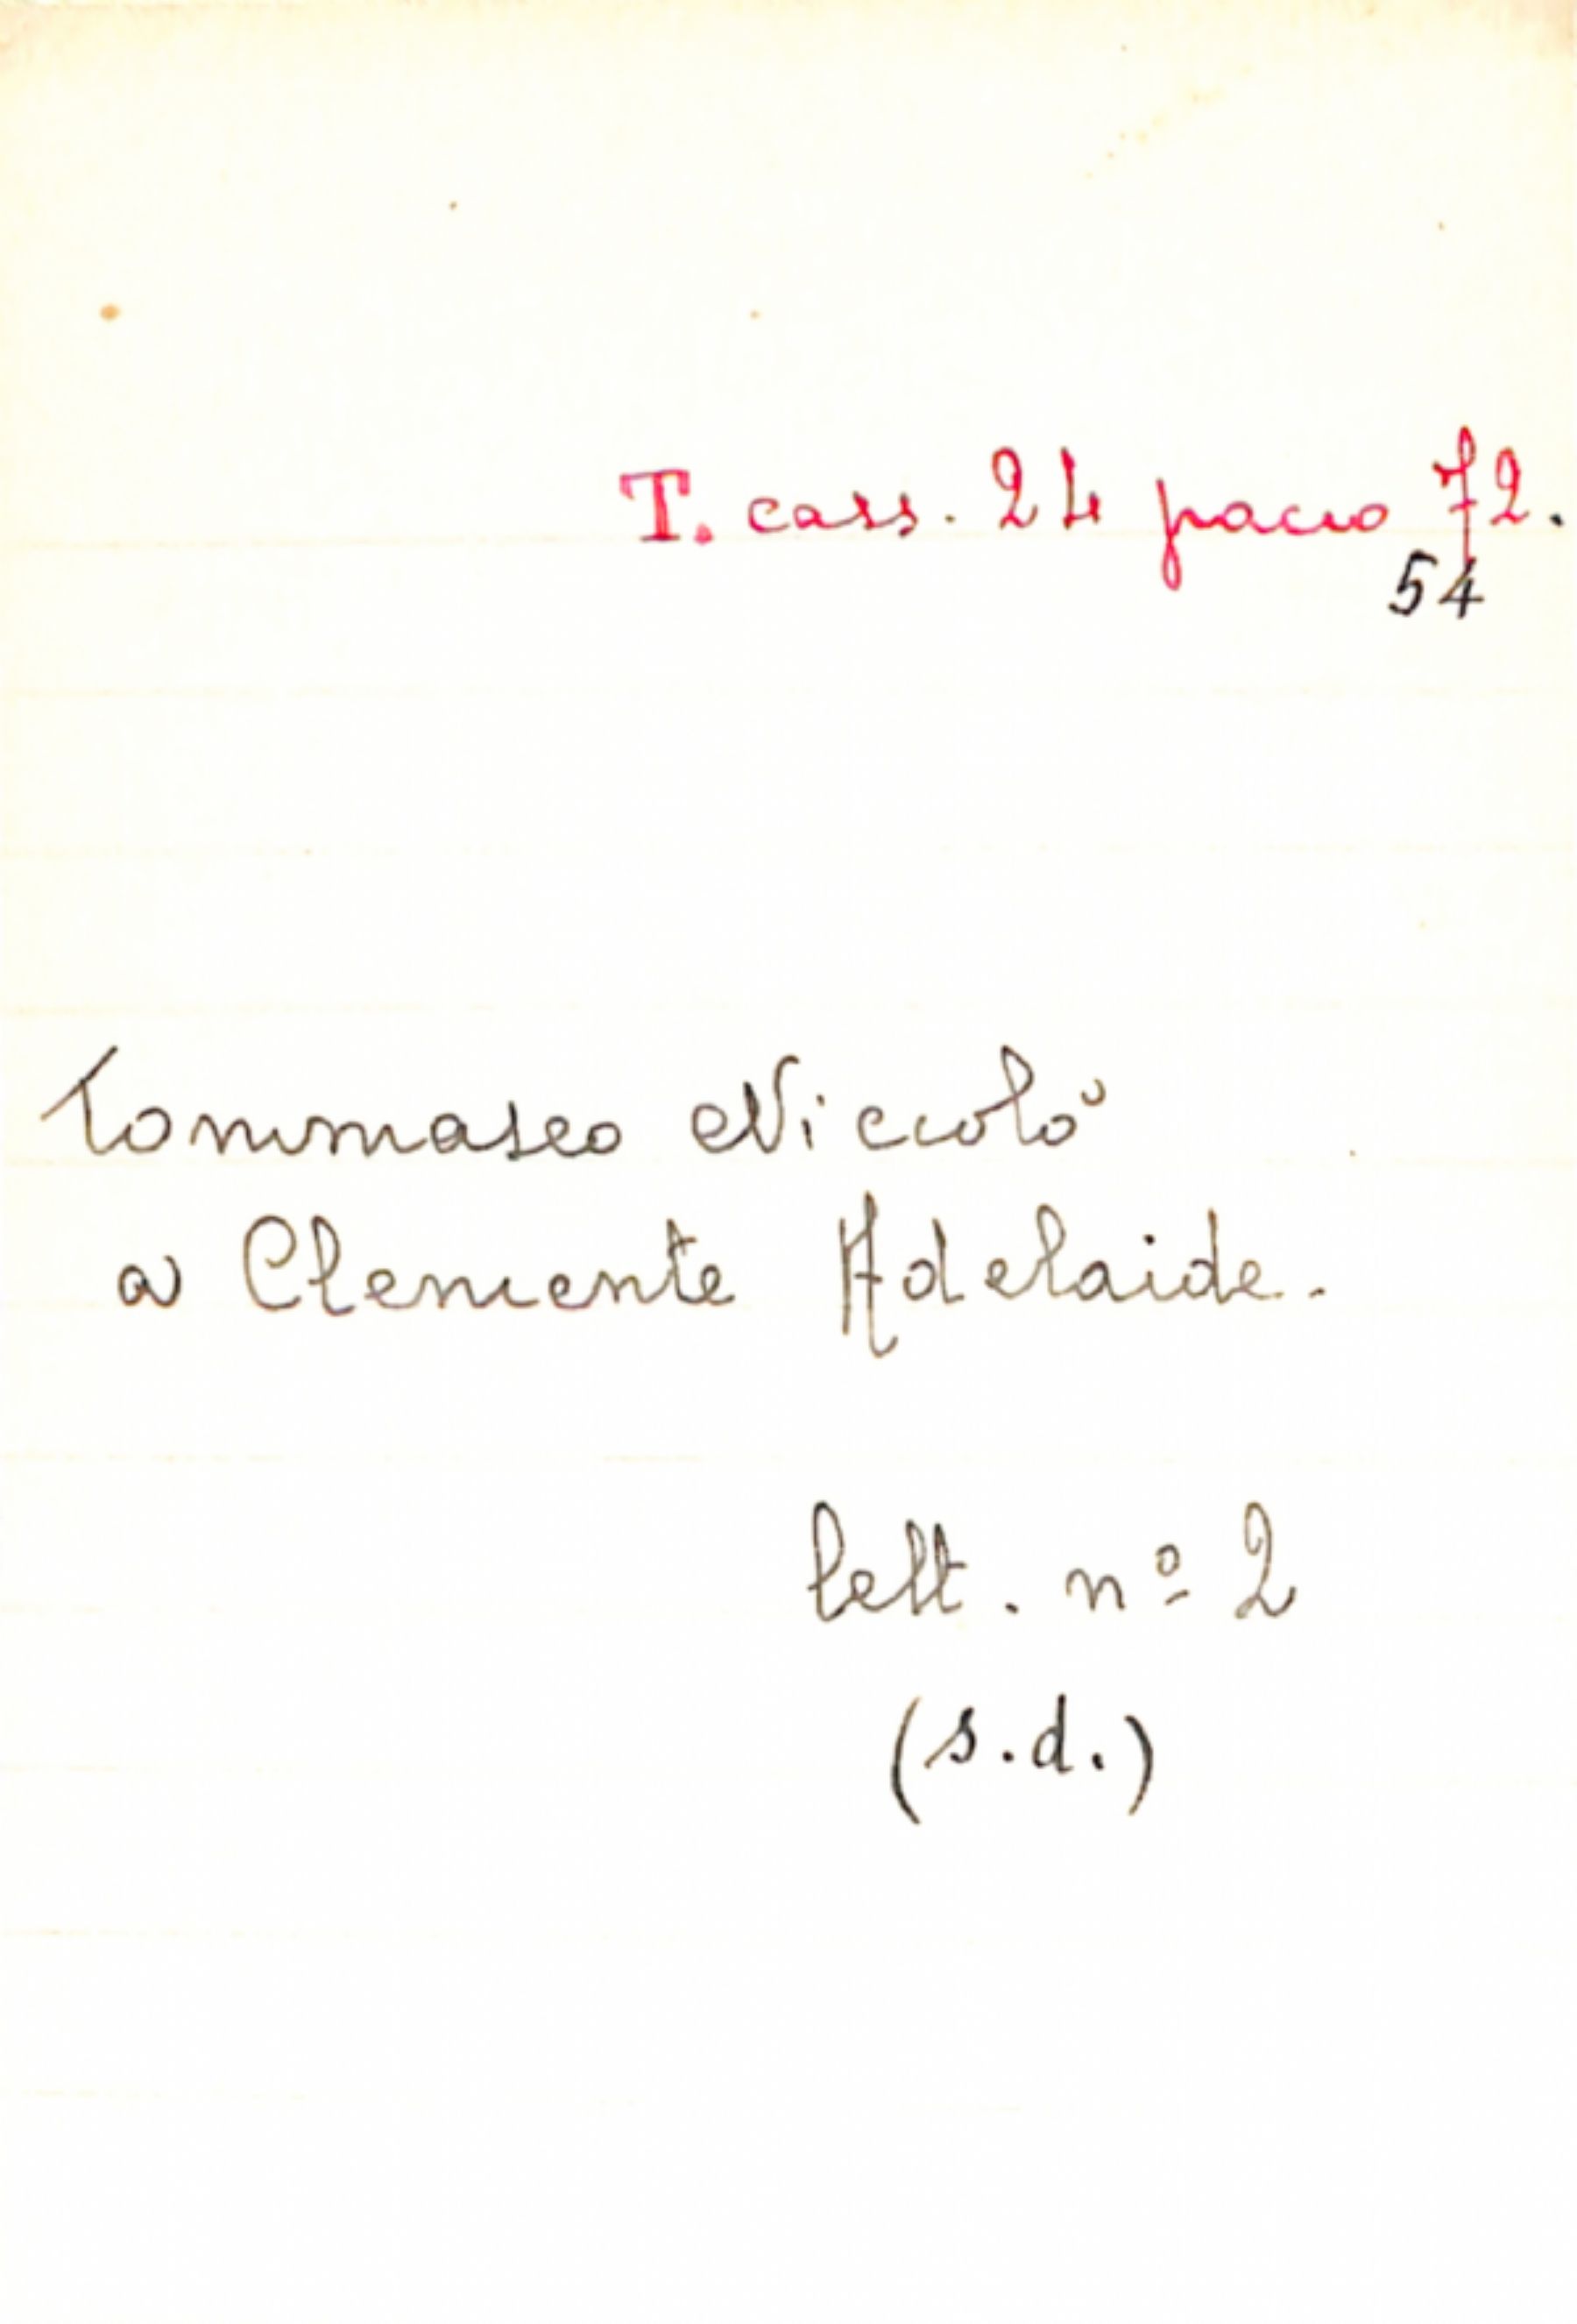 T. cass. 24 pacco 72.
54
Tommaseo Niccolò
a Clemente Adelaide.
lett. nº 2
(s.d.)